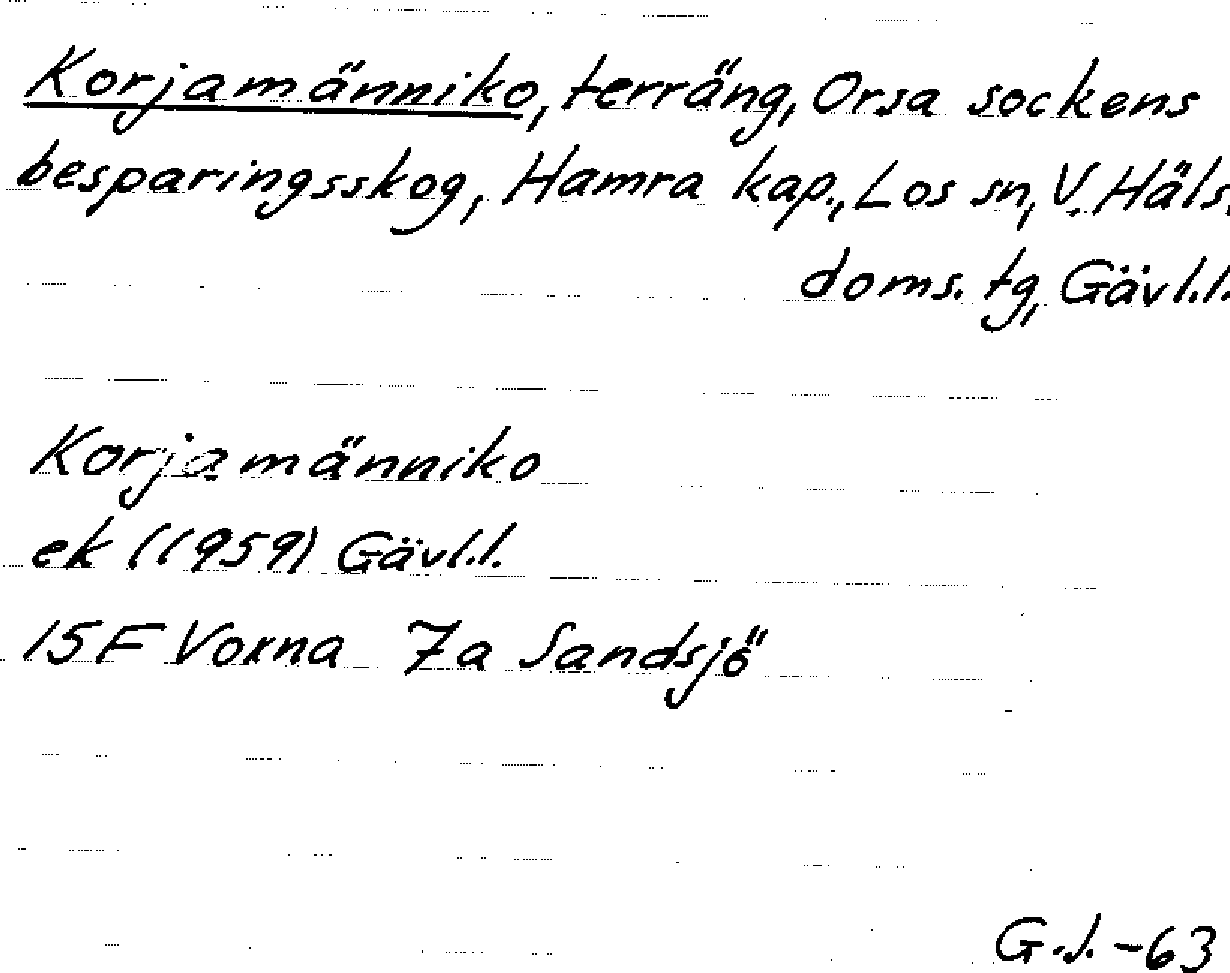 Korjamänniko, terräng, Orsa sockens
besparingsskog, Hamra kap., Los sn, V. Häls.
doms. tg, Gävl.l.
Korjamänniko
ek (1959) Gävl.l.
15F Voxna 7a Sandsjö
G.J. -63